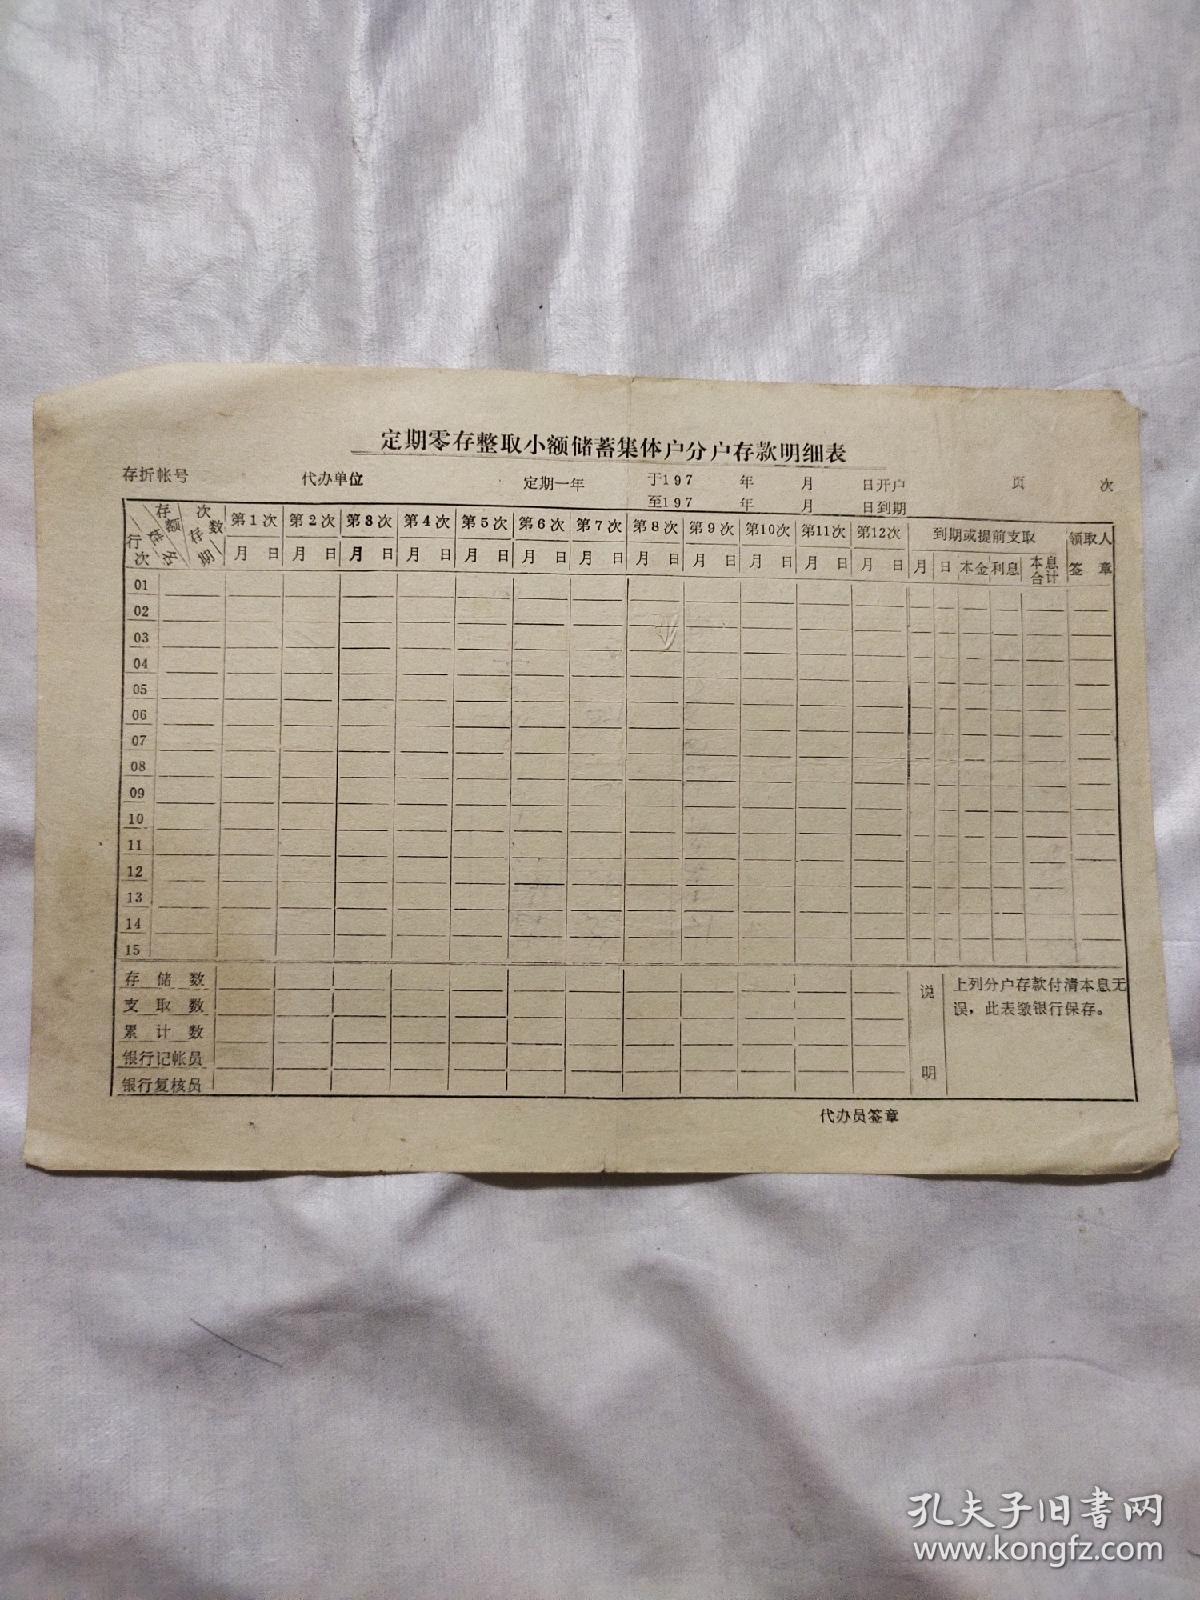 定期零存整取小额储蓄集体户分户存款明细表
存折帐号 代办单位 定期一年 于197 年 月 日开户 页 次
至197 年 月 日到期
行次 姓名 存额 存期 次数 第1次 第2次 第3次 第4次 第5次 第6次 第7次 第8次 第9次 第10次 第11次 第12次 到期或提前支取 领取人
月 日 月 日 月 日 月 日 月 日 月 日 月 日 月 日 月 日 月 日 月 日 月 日 月 日 本金 利息 本息合计 签章
01
02
03
04
05
06
07
08
09
10
11
12
13
14
15
存储数
支取数
累计数
银行记帐员
银行复核员
说明
上列分户存款付清本息无
误，此表缴银行保存。
代办员签章
孔夫子旧书网
www.kongfz.com